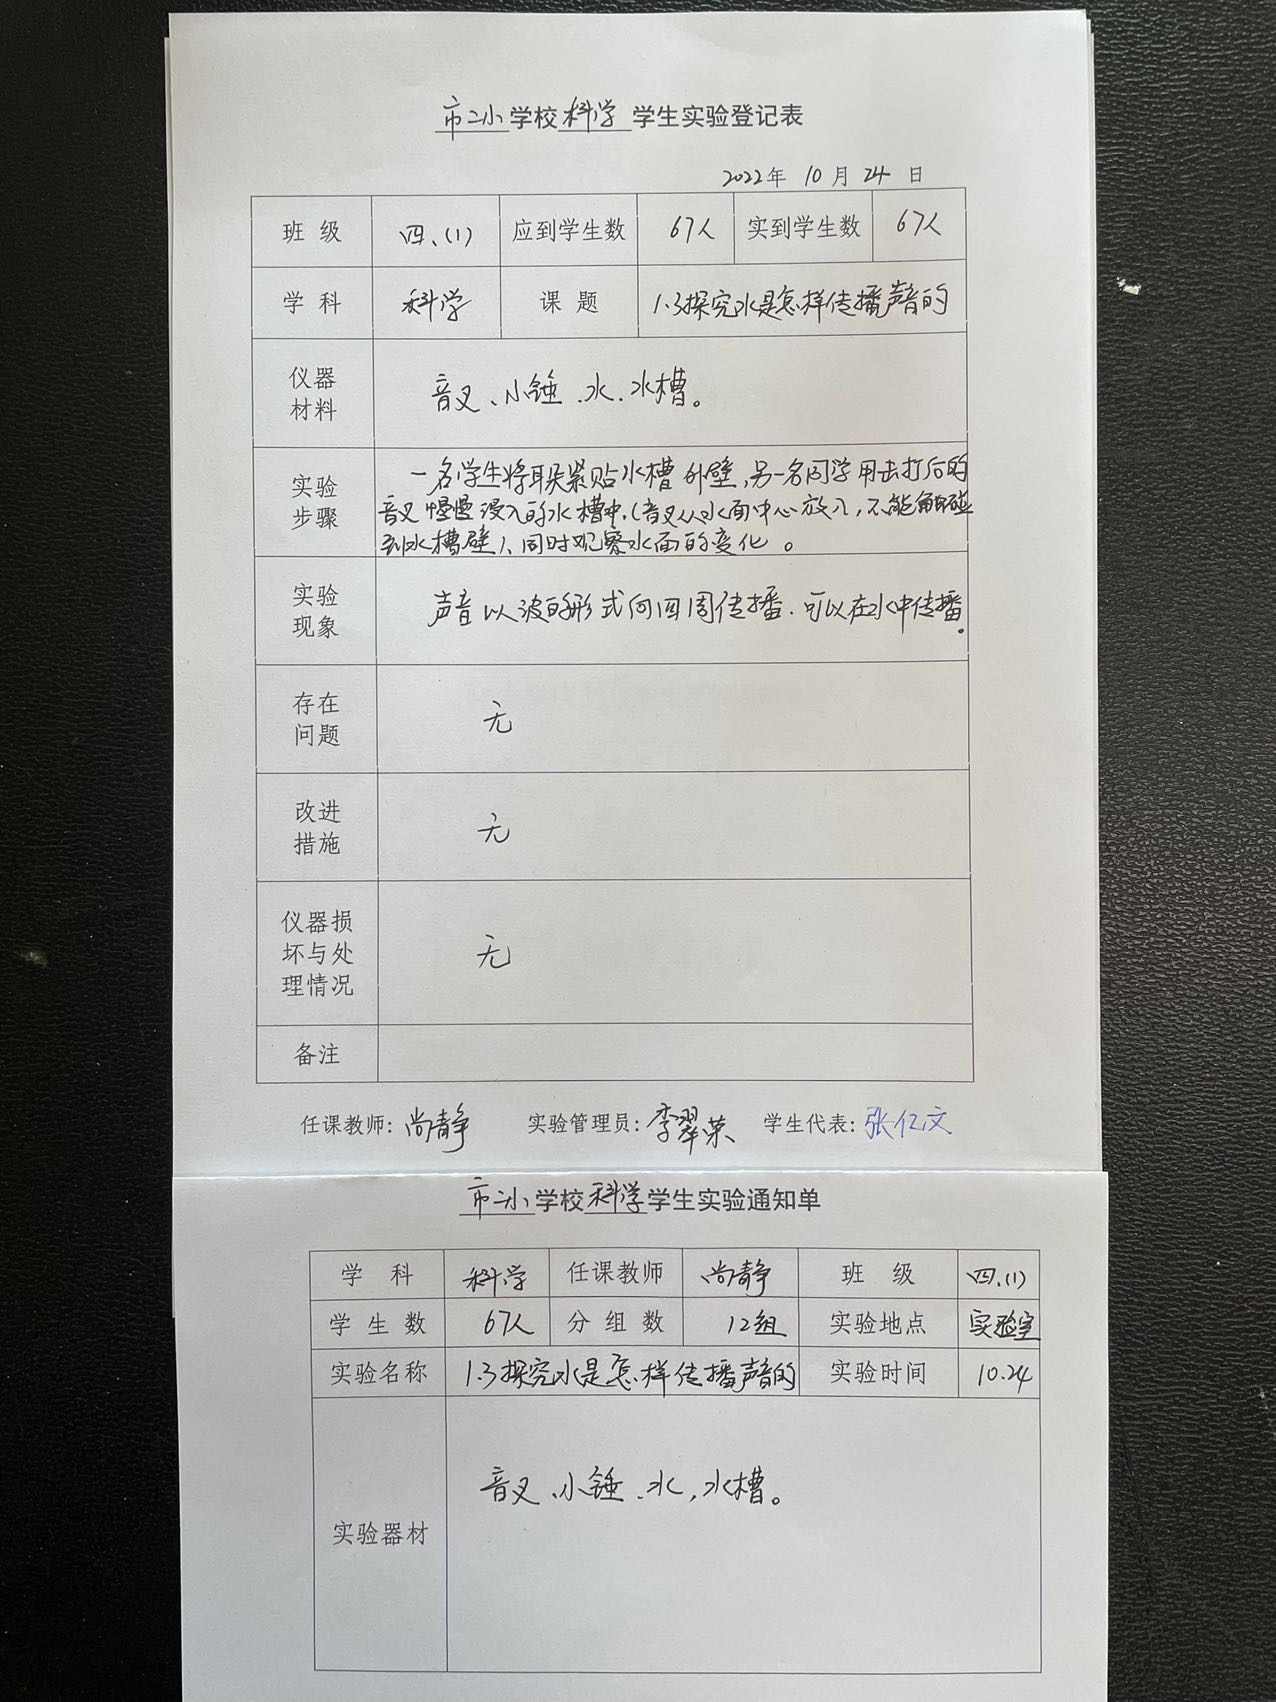 市二小学校科学 学生实验登记表
2022年 10月 24日
班 级 四、(1) 应到学生数 67人 实到学生数 67人
学 科 科学 课 题 1.3探究水是怎样传播声音的
仪器
材料
音叉、小锤、水、水槽。
实验
步骤
一名学生将耳朵紧贴水槽外壁,另一名同学用击打后的
音叉慢慢浸入的水槽中,(音叉从水面中心放入,不能触碰
到水槽壁)、同时观察水面的变化。
实验
现象
声音以波的形式向四周传播、可以在水中传播。
存在
问题
无
改进
措施
无
仪器损
坏与处
理情况
无
备注
任课教师:尚静 实验管理员:李翠荣 学生代表:张亿文
市二小学校科学学生实验通知单
学 科 科学 任课教师 尚静 班 级 四、(1)
学 生 数 67人 分 组 数 12组 实验地点 实验室
实验名称 1.3探究水是怎样传播声音的 实验时间 10.24
实验器材 音叉、小锤、水,水槽。